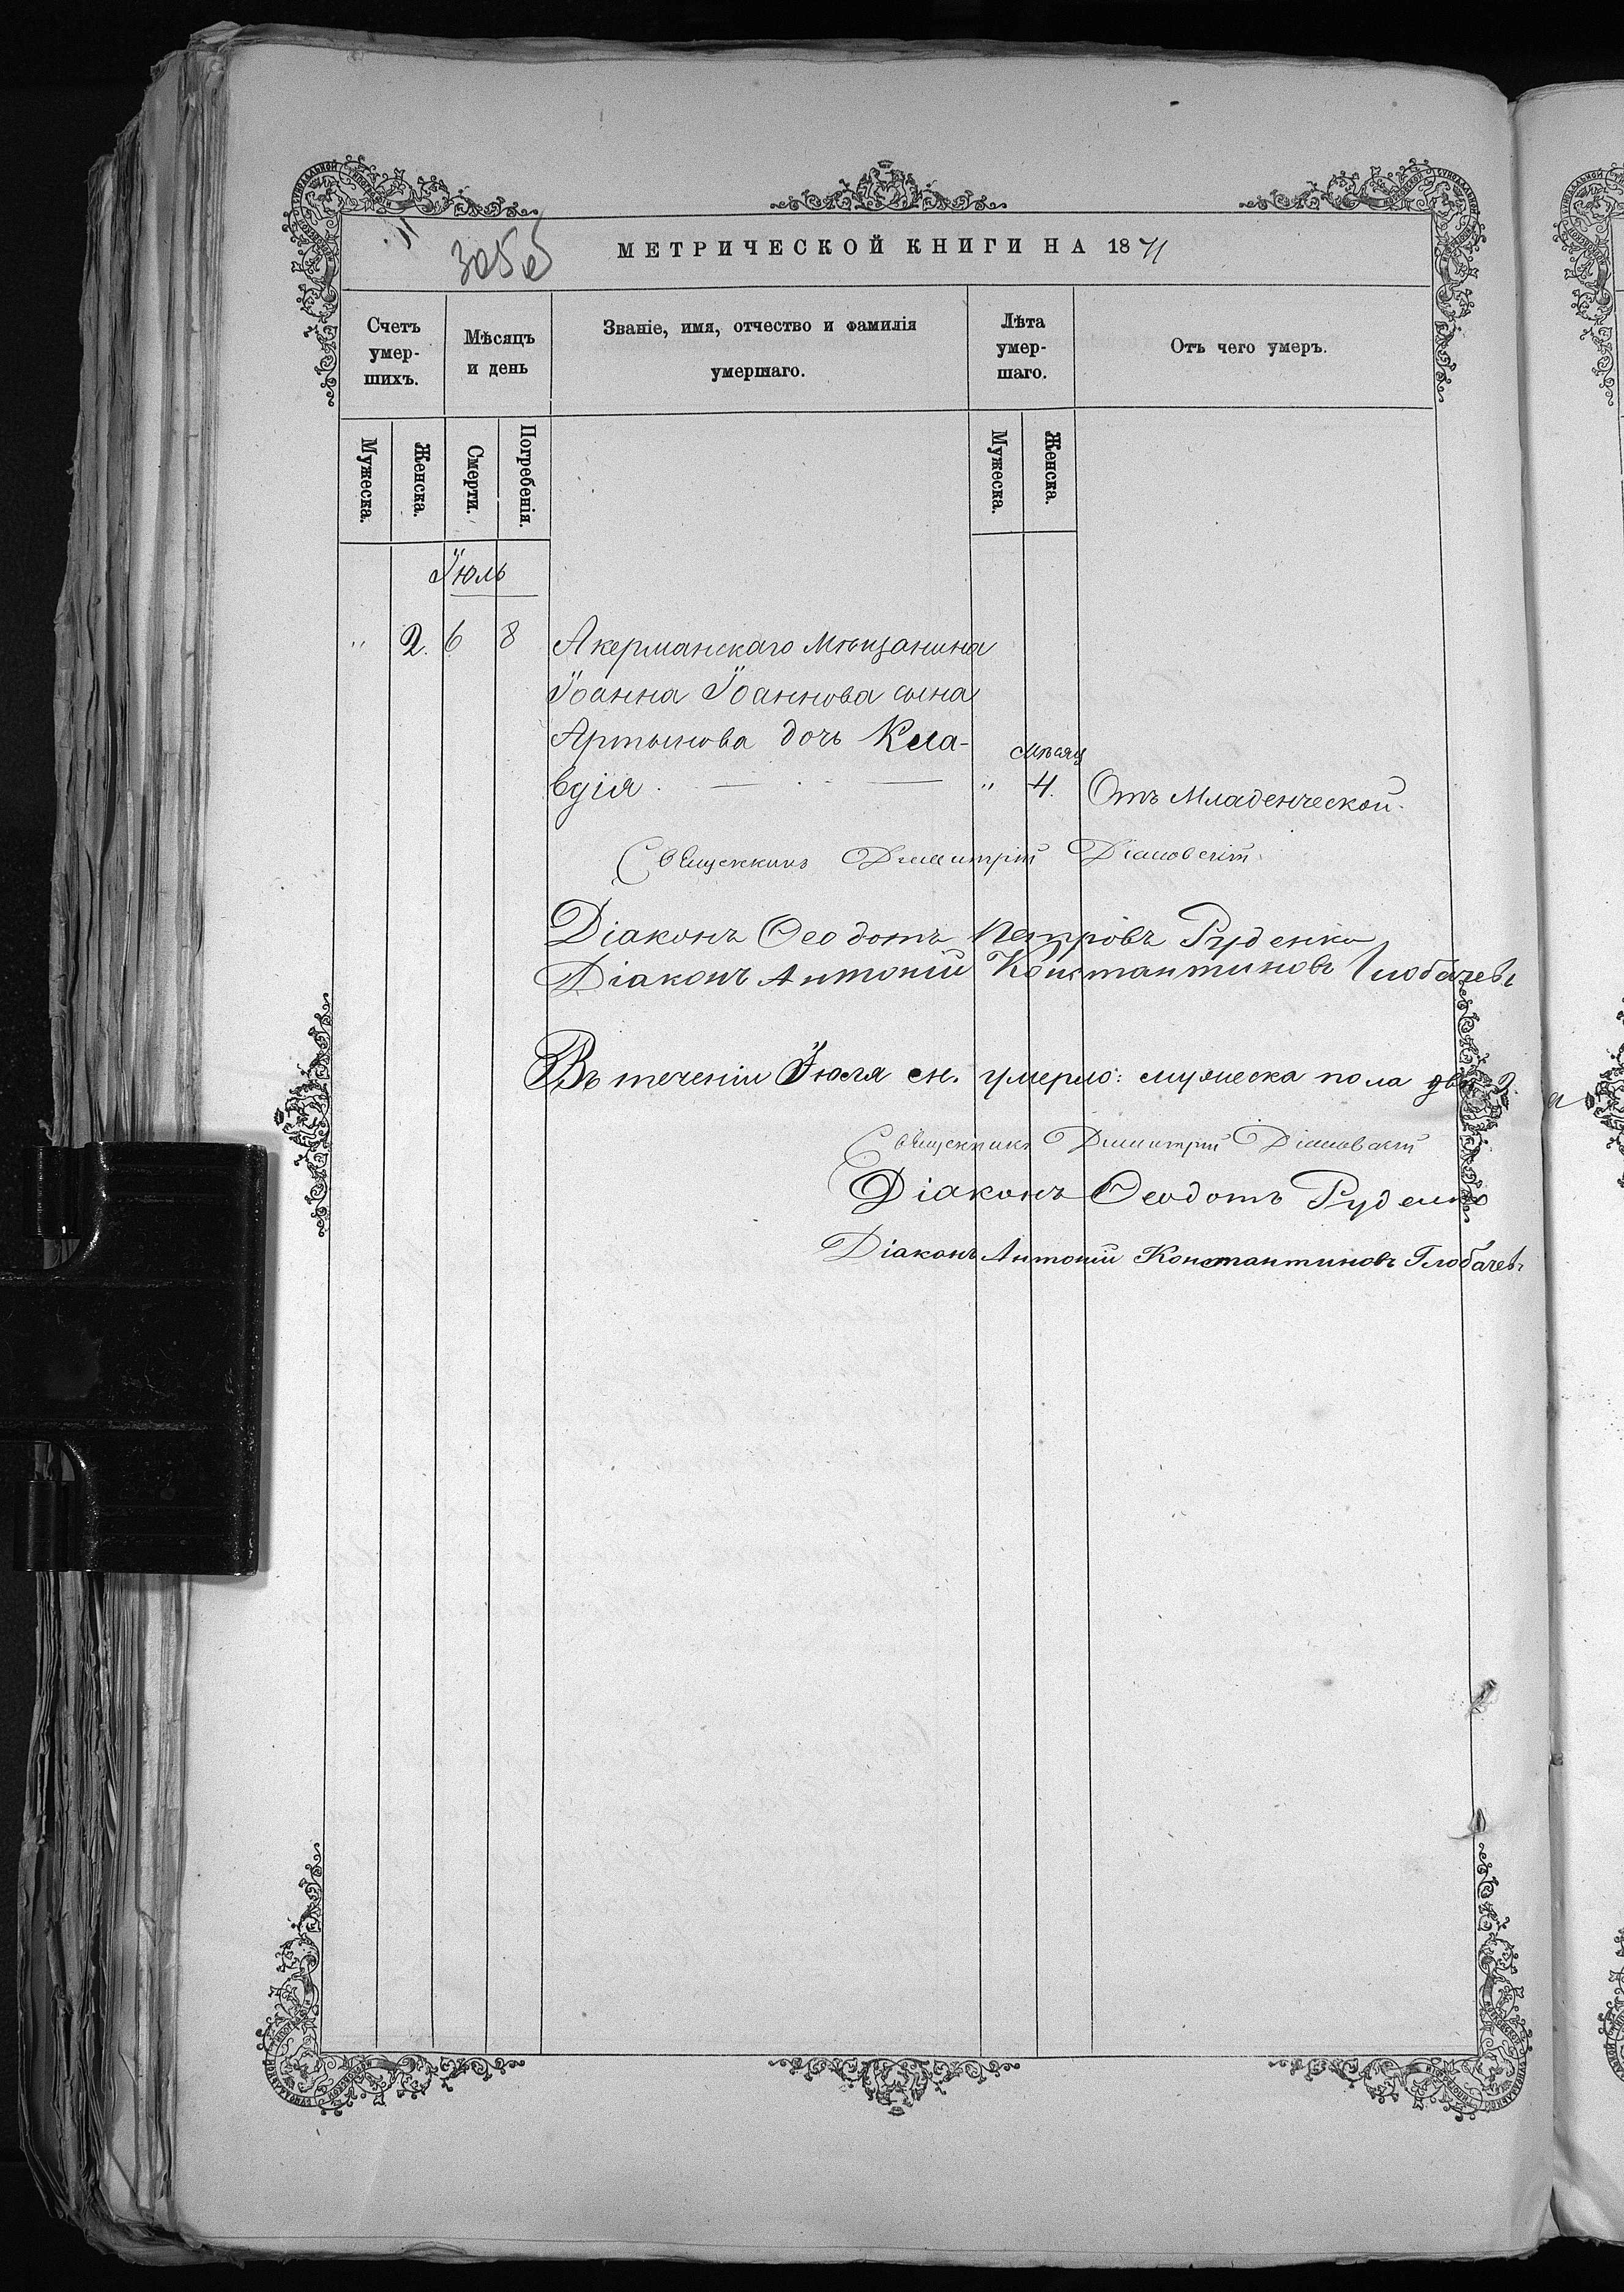 305 об
МЕТРИЧЕСКОЙ КНИГИ НА 1871
Счетъ умер-шихъ.
Мѣсяцъ и день
Званіе, имя, отчество и фамилія умершаго.
Лѣта умер-шаго.
Отъ чего умеръ.
Мужеска.
Женска.
Смерти.
Погребенія.
Мужеска.
Женска.
Іюль
" 2. 6 8 Акерманскаго Мѣщанина
Іоанна Іоаннова сына
Артынова дочь Кла-
мѣсяц
вдія " 4. Отъ Младенческой.
Священникъ Димитрій
Діаконъ Ѳеодотъ Петровъ Руденко
Діаконъ Антоній Константиновъ Глобачевъ
Въ теченіи Іюля м. умерло: мужеска пола два 2. а
Священникъ Димитрій
Діаконъ Ѳеодотъ Руденко
Діаконъ Антоній Константиновъ Глобачевъ